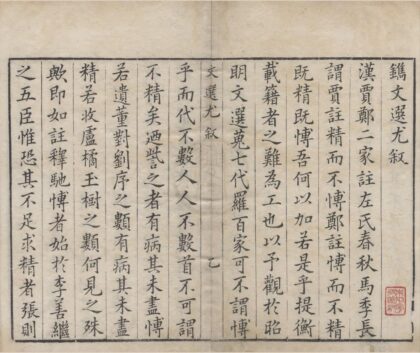 鐫文選尤叙
漢賈鄭二家註左氏春秋馬季長
謂賈註精而不愽鄭註愽而不精
既精既愽吾何以加若是乎提衡
載籍者之難為工也以予觀於昭
明文選蒐七代羅百家可不謂愽
文選尤叙
乙
乎而代不數人人不數首不可謂
不精矣迺訾之者有病其未盡愽
若遺董對劉序之類有病其未盡
精若收盧橘玉樹之類何見之殊
歟即如註釋馳愽者始於李善繼
之五臣惟恐其不足求精者張則